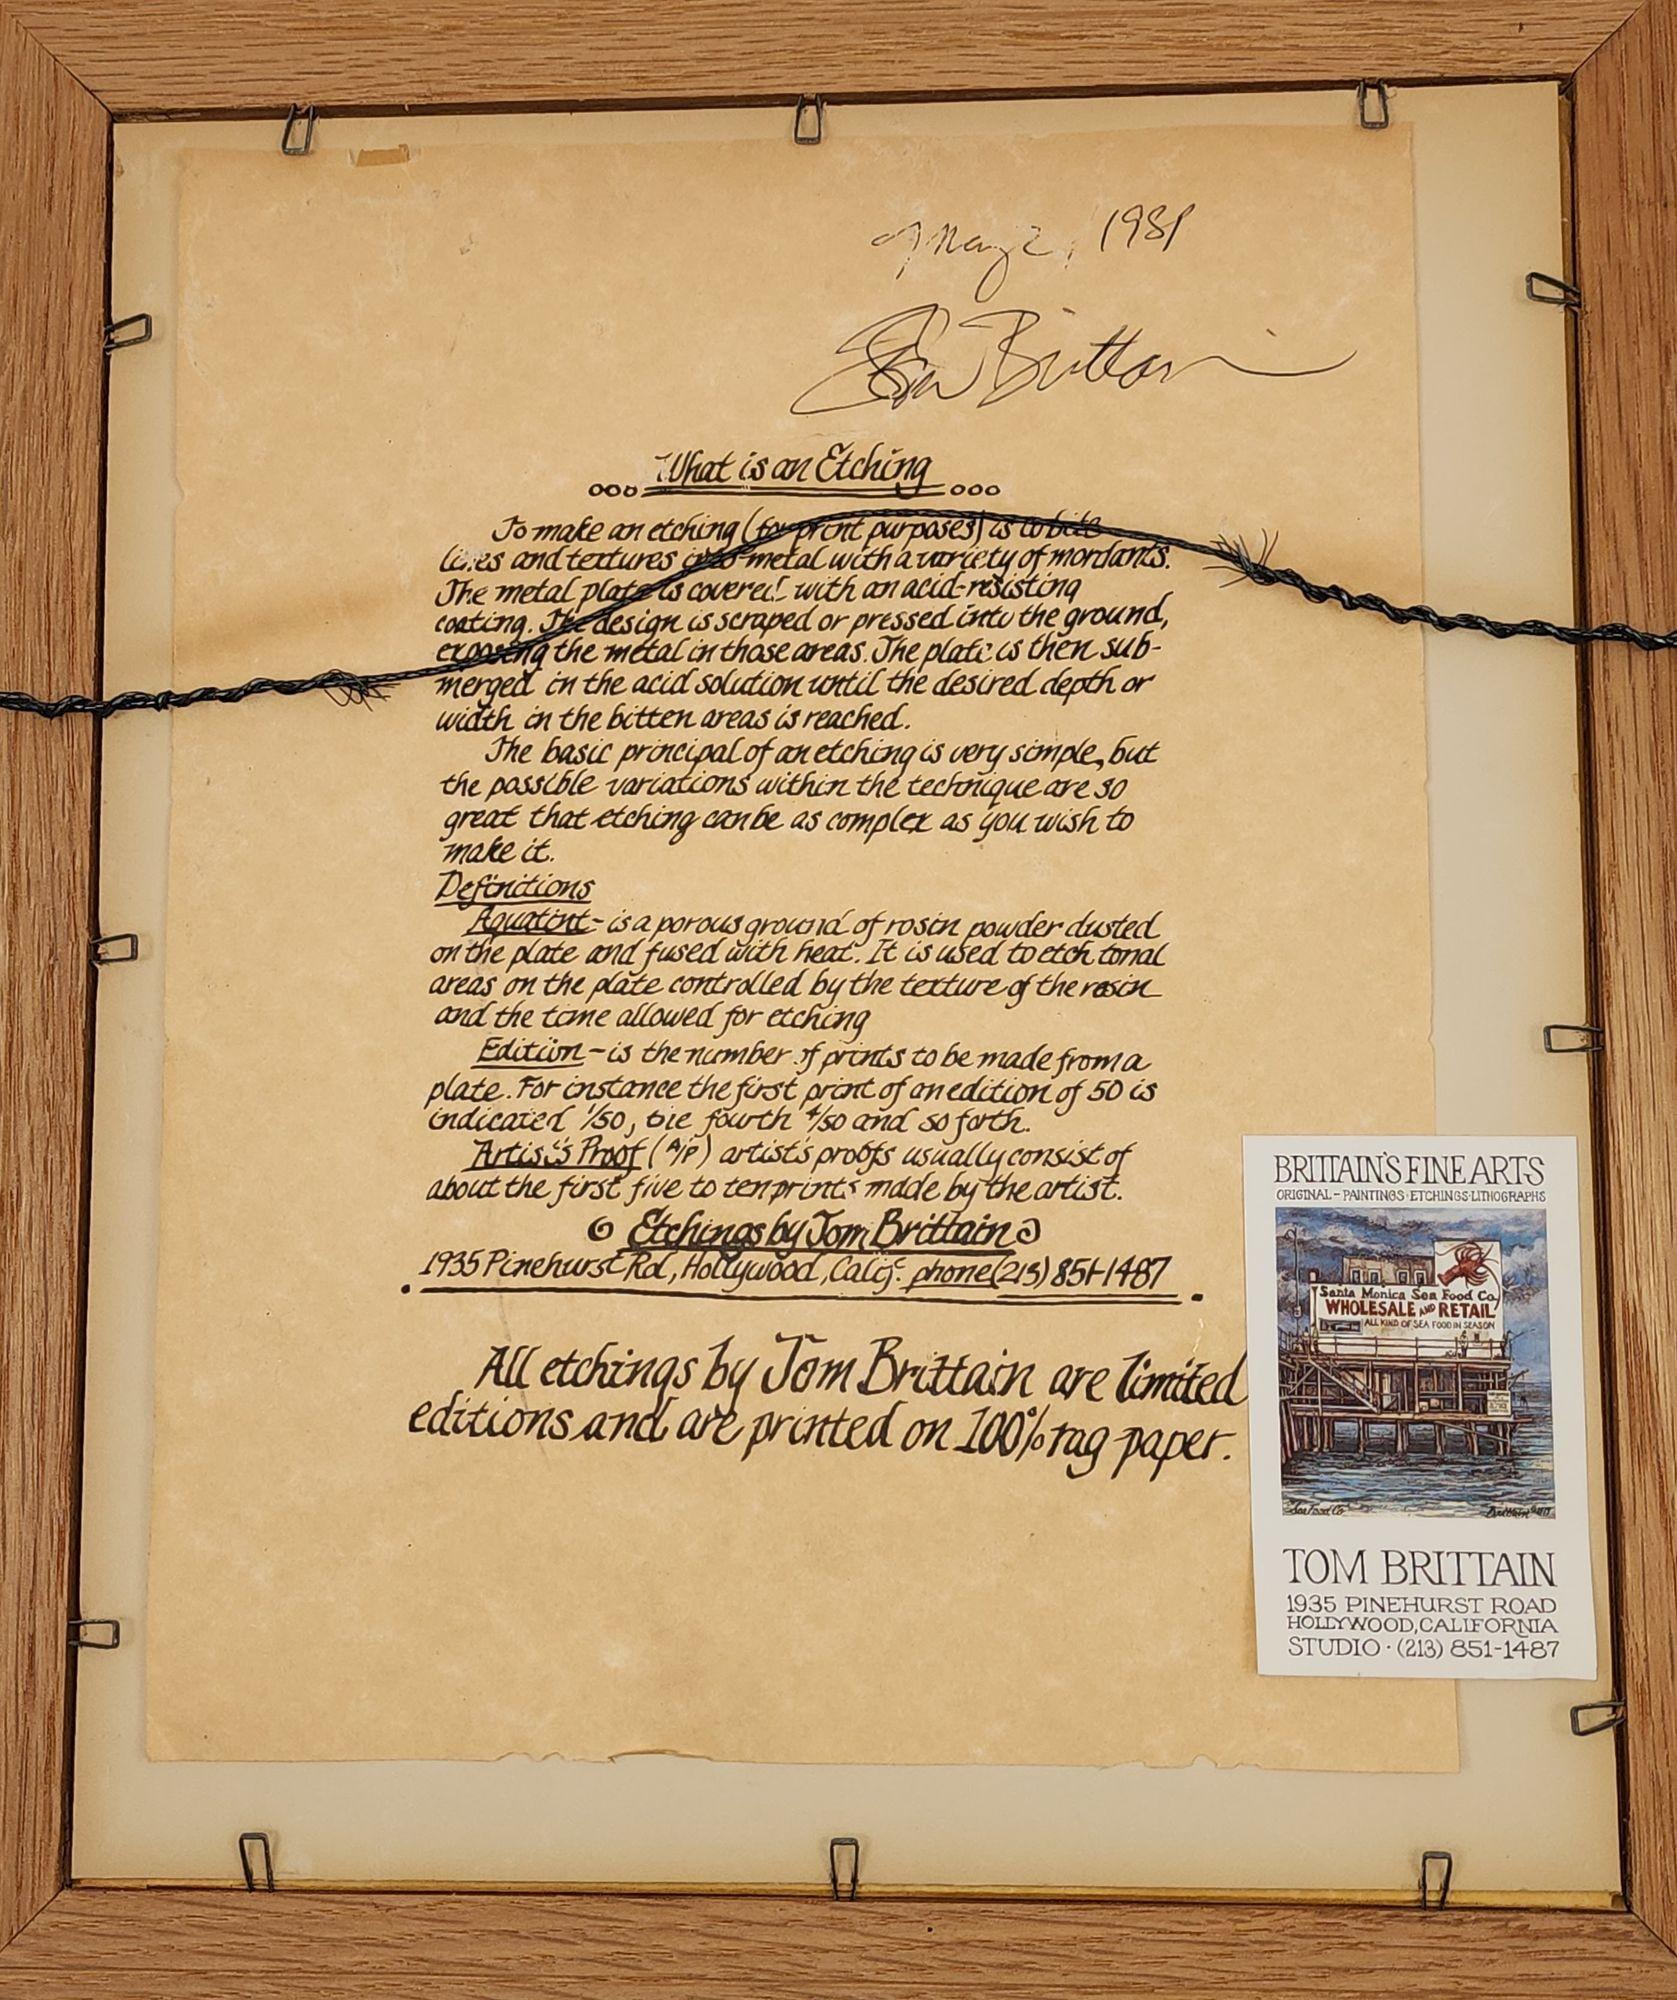 May 2, 1981
Tom Brittain
What is an Etching
To make an etching (for print purposes) is to bite
lines and textures into metal with a variety of mordants.
The metal plate is covered with an acid-resisting
coating. The design is scraped or pressed into the ground,
exposing the metal in those areas. The plate is then sub-
merged in the acid solution until the desired depth or
width in the bitten areas is reached.
The basic principal of an etching is very simple, but
the possible variations within the technique are so
great that etching can be as complex as you wish to
make it.
Definitions
Aquatint - is a porous ground of rosin powder dusted
on the plate and fused with heat. It is used to etch tonal
areas on the plate controlled by the texture of the rosin
and the time allowed for etching
Edition - is the number of prints to be made from a
plate. For instance the first print of an edition of 50 is
indicated 1/50, the fourth 4/50 and so forth.
Artist's Proof (A/P) artist's proofs usually consist of
about the first five to ten prints made by the artist.
Etchings by Tom Brittain
1935 Pinehurst Rd, Hollywood, Calif. phone (213) 851-1487
All etchings by Tom Brittain are limited
editions and are printed on 100% rag paper.
BRITTAIN'S FINE ARTS
ORIGINAL - PAINTINGS · ETCHINGS · LITHOGRAPHS
Santa Monica Sea Food Co.
WHOLESALE AND RETAIL
ALL KIND OF SEA FOOD IN SEASON
"Sea Food Co" Brittain
TOM BRITTAIN
1935 PINEHURST ROAD
HOLLYWOOD, CALIFORNIA
STUDIO · (213) 851-1487